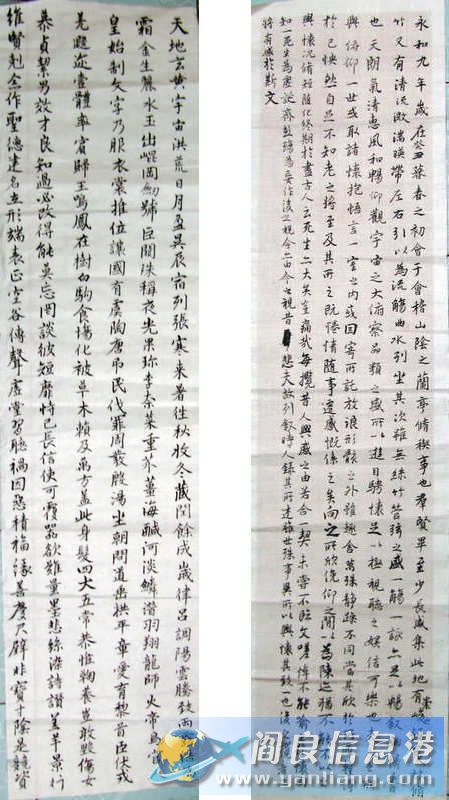 永和九年歲在癸丑暮春之初會于會稽山陰之蘭亭脩禊事也群賢畢至少長咸集此地有
竹又有清流激湍暎帶左右引以為流觴曲水列坐其次雖無絲竹管弦之盛一觴一詠亦足以暢叙
也天朗氣清惠風和暢仰觀宇宙之大俯察品類之盛所以遊目騁懷足以極視聽之娛信可樂也
與俯仰一世或取諸懷抱悟言一室之內或因寄所託放浪形骸之外雖趣舍萬殊靜躁不同當其欣於
於己快然自足不知老之將至及其所之既惓情隨事遷感慨係之矣向之所欣俛仰之間以為陳迹猶不
興懷況脩短隨化終期於盡古人云死生亦大矣豈不痛哉每攬昔人興感之由若合一契未嘗不臨文嗟悼不能喻
知一死生為虛誕齊彭殤為妄作後之視今亦由今之視昔悲夫故列叙時人錄其所述雖世殊事異所以興懷其致一也後之
將有感於斯文
天地玄黃宇宙洪荒日月盈昃辰宿列張寒來暑往秋收冬藏閏餘成歲律呂調陽雲騰致雨
霜金生麗水玉出崐岡劍號巨闕珠稱夜光果珍李柰菜重芥薑海鹹河淡鱗潛羽翔龍師火帝鳥
皇始制文字乃服衣裳推位讓國有虞陶唐弔民伐罪周發殷湯坐朝問道垂拱平章愛育黎首臣伏戎
羌遐迩壹體率賓歸王鳴鳳在樹白駒食場化被草木賴及萬方蓋此身髮四大五常恭惟鞠養豈敢毀傷女
慕貞絜男效才良知過必改得能莫忘罔談彼短靡恃己長信使可覆器欲難量墨悲絲染詩讚羔羊景行
維賢剋念作聖德建名立形端表正空谷傳聲虛堂習聽禍因惡積福緣善慶尺璧非寶寸陰是競資
阎良信息港
www.yanliang.com